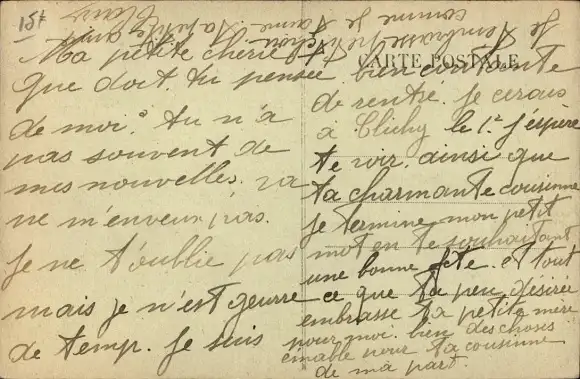 15t
CARTE POSTALE
Ma petite cherie
que doit. tu pensée
de moi? tu n'a
pas souvent de
mes nouvelles. va
ne m'enveux pas.
je ne t'oublie pas
mais je n'est geurre
de temp. je suis
bien contente
de rentre. je cerais
à Clichy le 1e j'espère
te voir. ainsi que
ta charmante cousinne
je termine mon petit
mot en te souhaitant
une bonne fête. et tout
ce que ta peu désirée
embrasse ta petite mère
pour moi. bien des choses
eimable pour ta cousinne
de ma part.
Je t'embrasse
comme je t'aime ta petite
amie